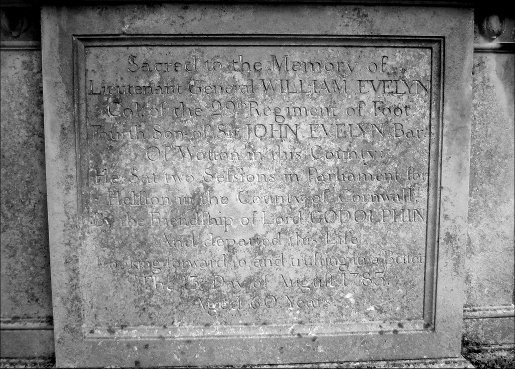 Sacred to the Memory of
Lieutenant General WILLIAM EVELYN
Col. of the 29th Regiment of Foot
Fourth Son of Sir JOHN EVELYN Bart
Of Wotton in this County.
He Sat two Sessions in Parliament for
Hellton in the County of Cornwall,
By the Friendship of Lord GODOLPHIN
And departed this Life
Looking forward to and trusting in a Better
The Day of August 1783
Aged 60 Years